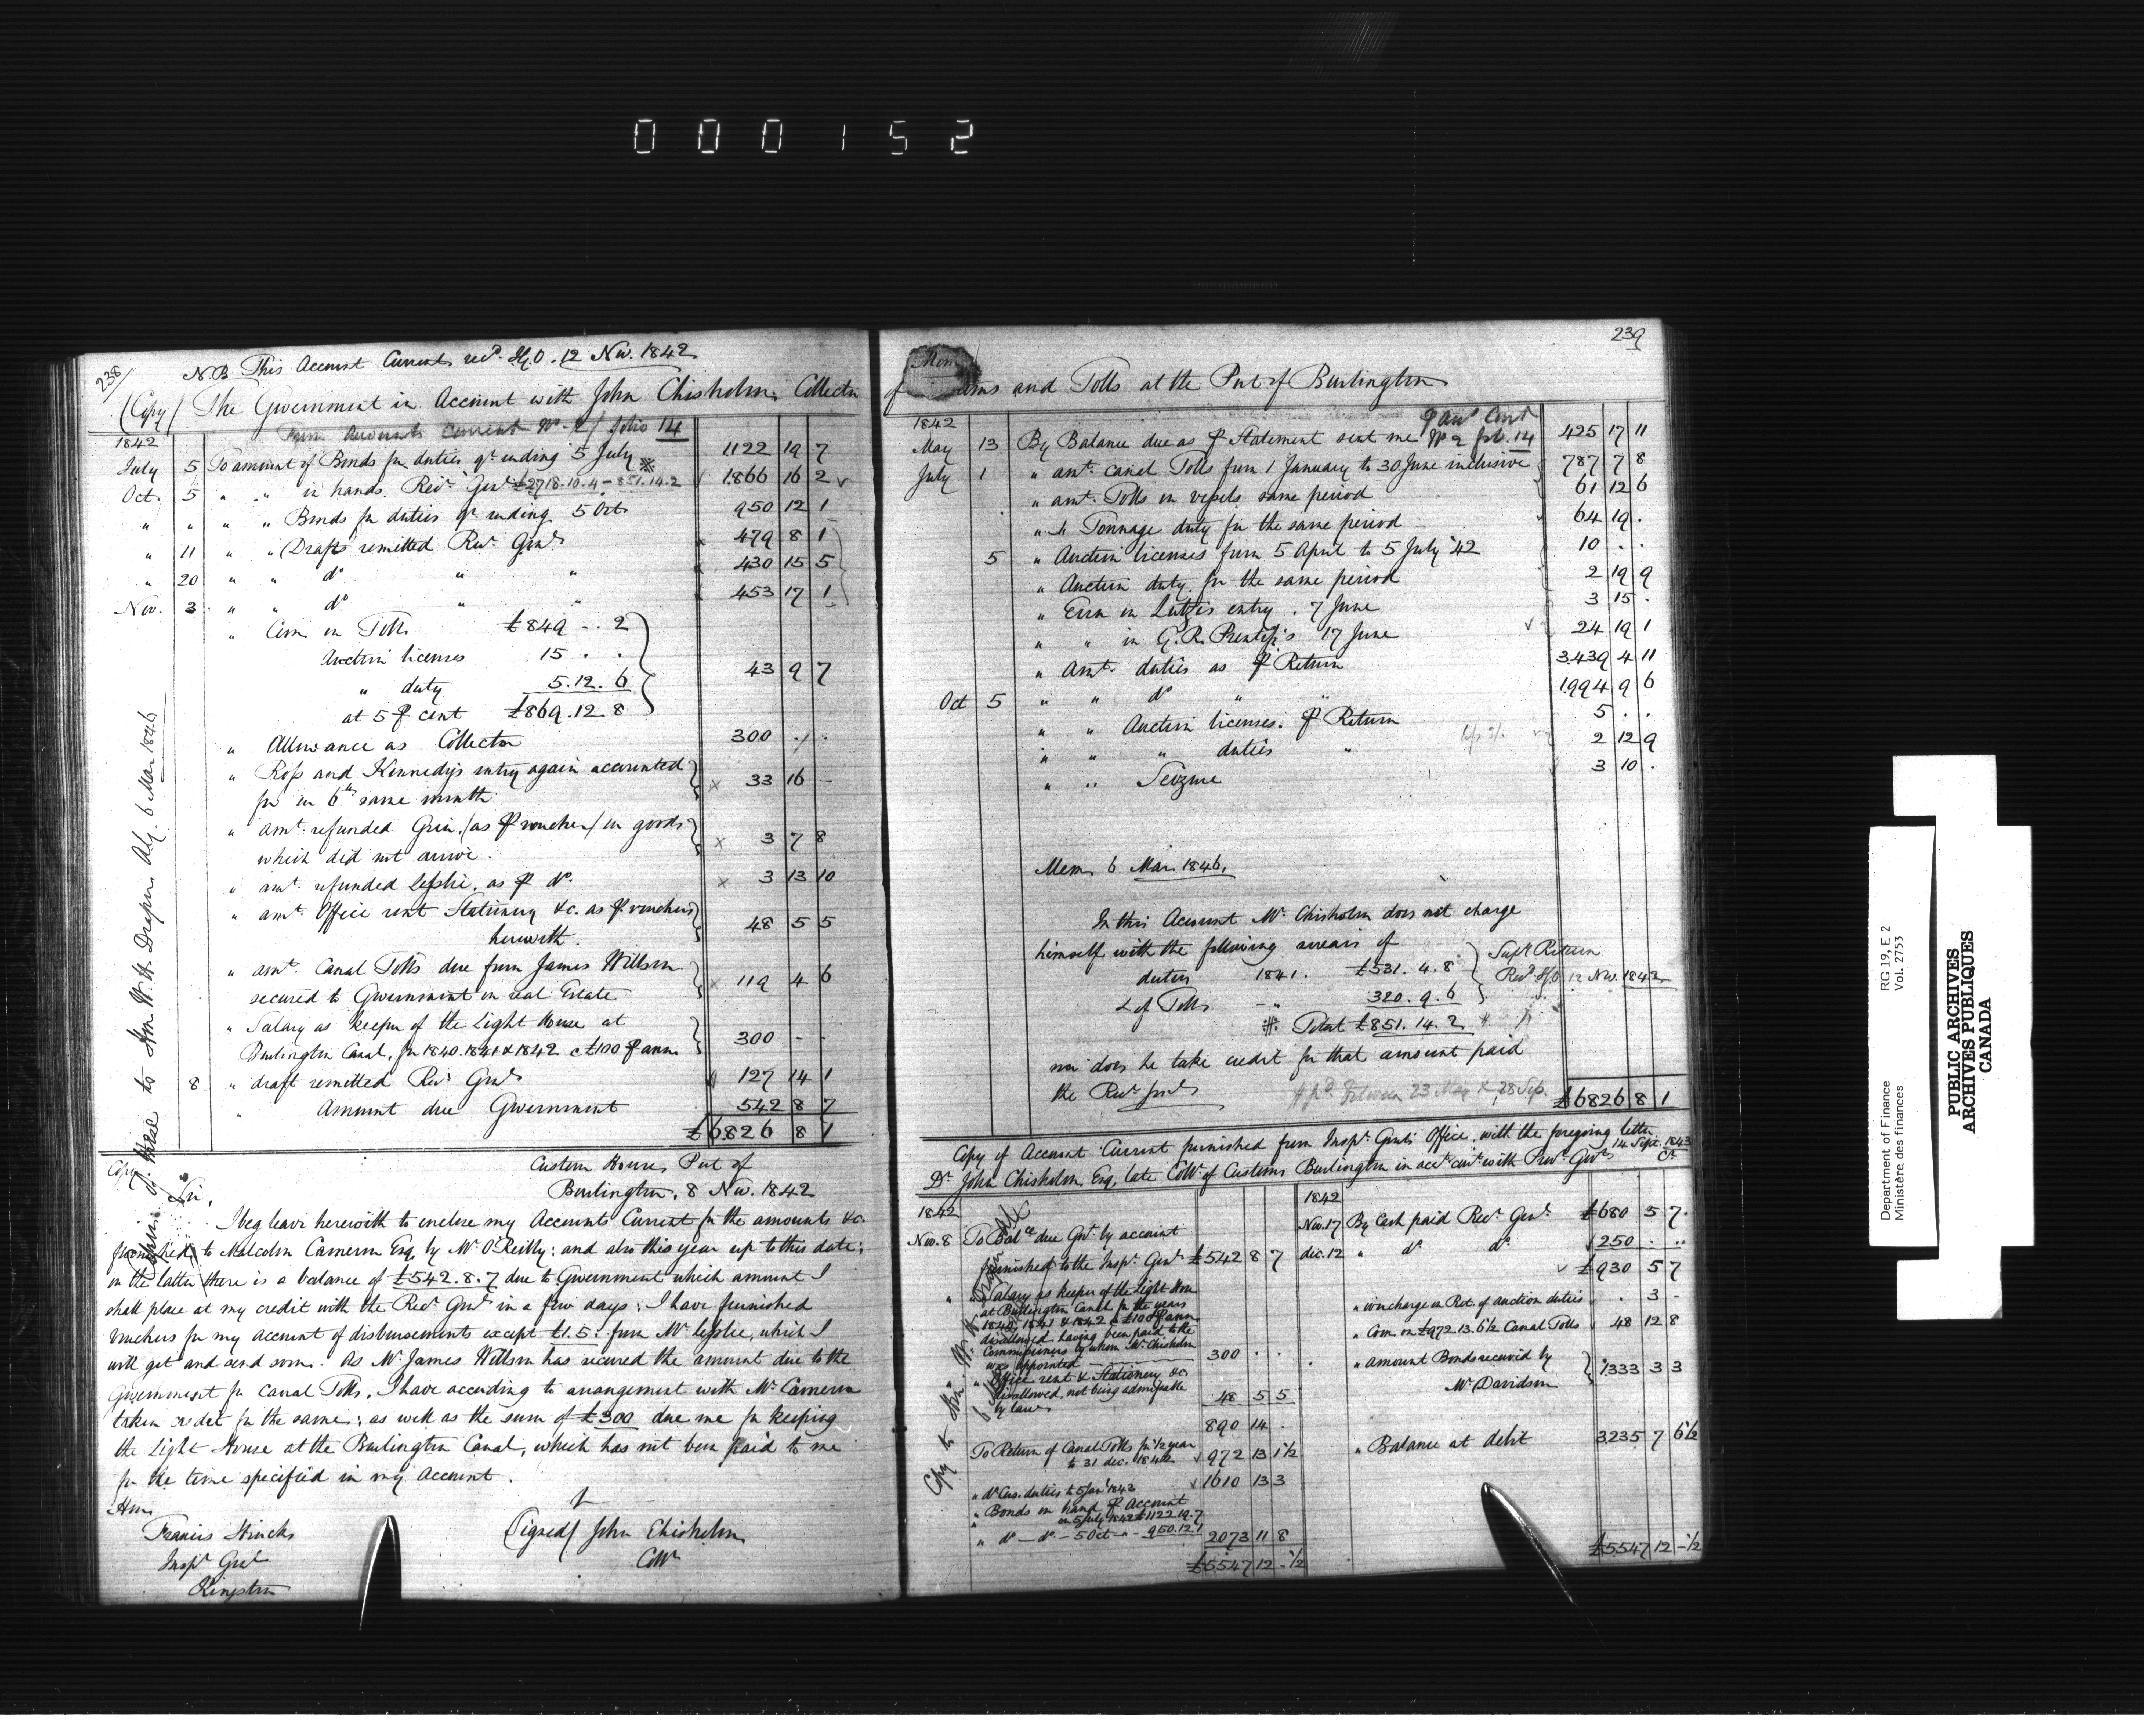 000152
238/
N.B This Account Current recd. I.G.O. 12 Nov. 1842
(Copy) The Government in Account with John Chisholm, Collector
From Accounts Current No. 2/ folio 14
1842
July 5 To amount of Bonds for duties qr. ending 5 July 1122 19 7
Oct. 5 " " in hands Recr. Genl. £2718.10.4 - 851.14.2 1866 16 2
" " " " Bonds for duties qr. ending 5 Oct. 950 12 1
" 11 " " Drafts remitted Recr. Genl. 479 8 1
" 20 " " do " " 430 15 5
Nov. 3 " " do " " 453 17 1
" Com. on Tolls £849 - . 2
Auction licenses 15 . .
" duty 5.12.6
at 5 pr cent £869.12.8 43 9 7
" Allowance as Collector 300 . .
" Ross and Kennedy's entry again accounted
for in 6th same month 33 16 -
" amt. refunded (as pr voucher) on goods
which did not arrive. 3 7 8
" amt. refunded Leslie, as pr do. 3 13 10
" amt. Office rent Stationery &c. as pr vouchers
herewith. 48 5 5
" amt. Canal Tolls due from James Willson
secured to Government on real Estate 119 4 6
" Salary as keeper of the Light House at
Burlington Canal, for 1840.1841 & 1842 @ £100 pr ann. 300 - -
8 " draft remitted Recr. Genl. 127 14 1
" Amount due Government 542 8 7
£6826 8 1
Copy of these to Hon. W.H. Draper Atty. 6 Mar 1846
Copy
Custom House, Port of
Burlington, 8 Nov. 1842
Sir,
I beg leave herewith to enclose my Accounts Current for the amounts &c.
furnished to Malcolm Cameron Esq. by Mr. O'Reilly; and also this year up to this date;
in the latter there is a balance of £542.8.7 due to Government which amount I
shall place at my credit with the Recr. Genl. in a few days: I have furnished
vouchers for my account of disbursements except £1.5: from Mr. Leslie, which I
will get and send soon. As Mr. James Willson has secured the amount due to the
Government for Canal Tolls, I have according to arrangement with Mr. Cameron
taken credit for the same; as well as the sum of £300 due me for keeping
the Light House at the Burlington Canal, which has not been paid to me
for the time specified in my account.
Hon.
Francis Hincks
Inspr. Genl.
Kingston
(Signed) John Chisholm
Collr.
239
Mem
and Tolls at the Port of Burlington
1842
May 13 By Balance due as pr Statement sent me pr acct. Curt. No 2 fol. 14 425 17 11
July 1 " amt. canal Tolls from 1 January to 30 June inclusive 787 7 8
" amt. Tolls on vessels same period 61 12 6
" " Tonnage duty for the same period 64 19 .
5 " Auction licenses from 5 April to 5 July '42 10 . .
" Auction duty for the same period 2 19 9
" Error in Lutz's entry. 7 June 3 15 .
" " in G.R. Prentiss's 17 June 24 19 1
" Amt. duties as pr Return 3439 4 11
Oct 5 " " do " " 1994 9 6
" " Auction licenses. pr Return 5 . .
" " " duties " 2 12 9
" " Seizure 3 10 .
Mem. 6 Mar. 1846.
In this Account Mr. Chisholm does not charge
himself with the following arrears of
duties 1841. £531.4.8
& of Tolls - " 320.9.6
Supr Return
Recd. I.G.O. 12 Nov. 1842
Total £851.14.2
nor does he take credit for that amount paid
the Recr. Genl. # pd. between 23 May & 28 Sep.
£6826 8 1
Copy of Account Current furnished from Inspr. Genl's Office, with the foregoing letter 14 Sept. 1843
Dr. John Chisholm, Esq. late Collr. of Customs Burlington in acct. curt. with Provl. Govt. Cr.
1842
Nov. 8 To Balce. due Govt. by account
furnished to the Inspr. Genl. £542 8 7
" " Salary as keeper of the Light House
at Burlington Canal for the years
1840, 1841 & 1842 @ £100 pr ann.
disallowed, having been paid to the
Commissioners by whom Mr. Chisholm
was appointed 300 . .
" Office rent & Stationery &c
disallowed, not being admissable
by law 48 5 5
890 14 .
To Return of Canal Tolls for 1/2 year
to 31 dec. 1842 972 13 1 1/2
" do Cus. duties to 5 Jany 1843 1610 13 3
" Bonds on hand pr Account
on 5 July 1842 £1122.19.7
" do - do - 5 Oct - " - 950.12.1 2073 11 8
£5547 12 - 1/2
1842
Nov. 17 By Cash paid Recr. Genl. £680 5 7
dec. 12 " do. do. 250 . ..
£930 5 7
" overcharge on Ret. of auction duties . 3 -
" Com. on £972.13.6 1/2 Canal Tolls 48 12 8
" amount Bonds received by
Mr. Davidson 1333 3 3
" Balance at debit 3235 7 6 1/2
£5547 12 - 1/2
Department of Finance
Ministère des finances
RG 19, E 2
Vol. 2753
PUBLIC ARCHIVES
ARCHIVES PUBLIQUES
CANADA